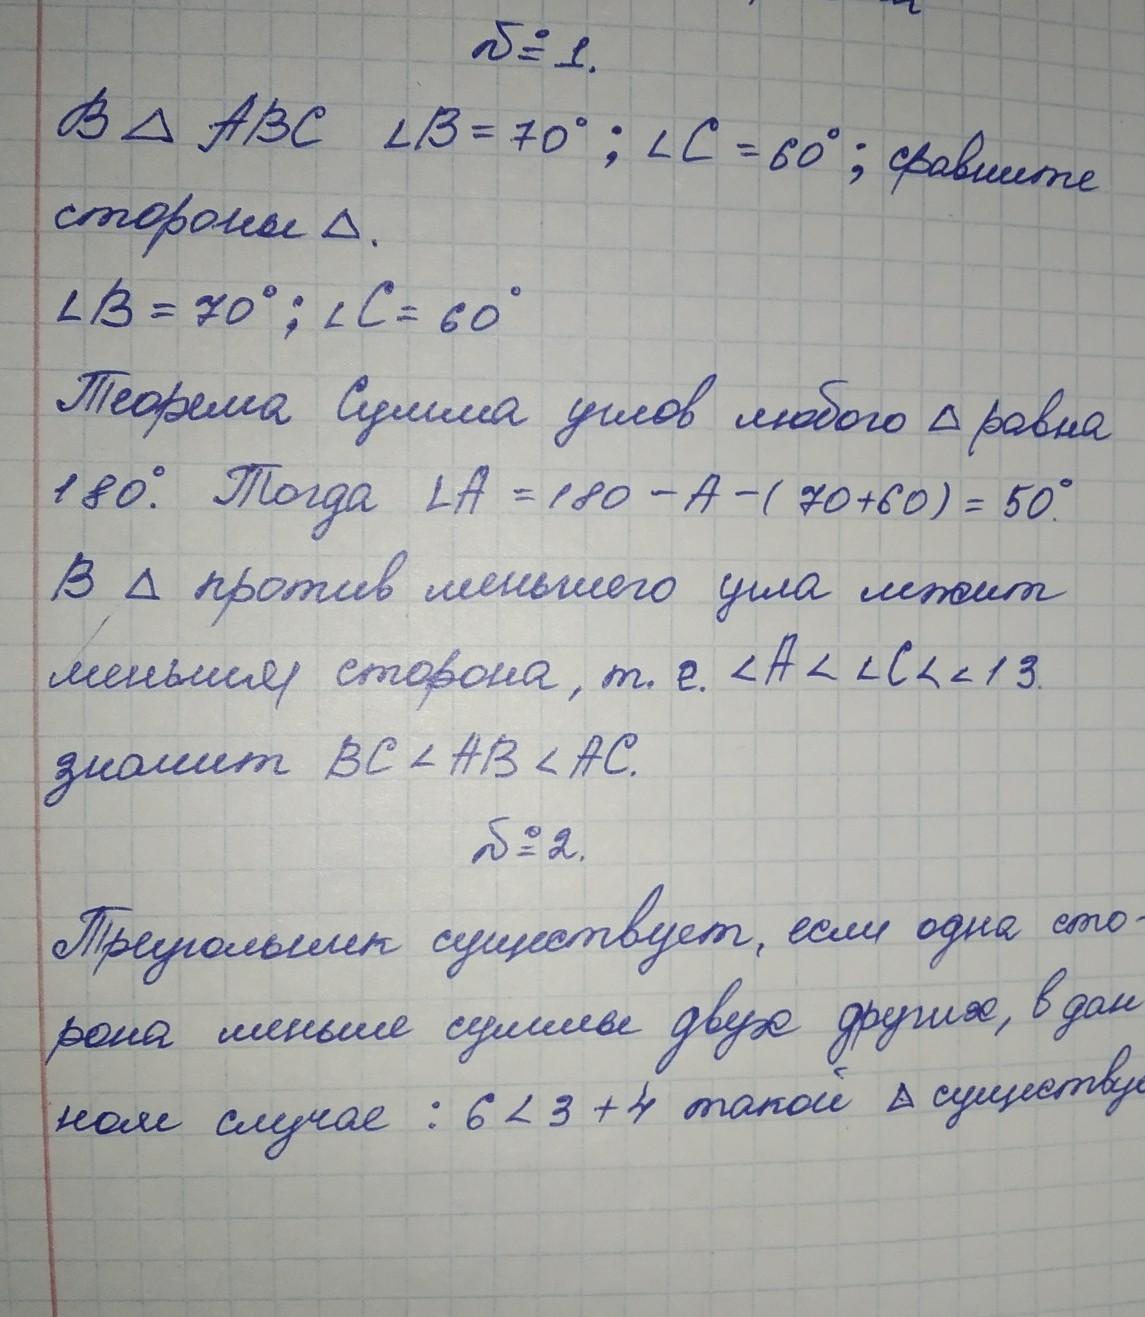 № 1.
В △ ABC ∠B = 70°; ∠C = 60°; сравните
стороны △.
∠B = 70°; ∠C = 60°
Теорема Сумма углов любого △ равна
180°. Тогда ∠A = 180 - A - (70+60) = 50°.
В △ против меньшего угла лежит
меньшая сторона, т. е. <A < <C < <13.
значит BC < AB < AC.
№ 2.
Треугольник существует, если одна сто-
рона меньше суммы двух других, в дан
ном случае : 6 < 3 + 4 такой △ существуе